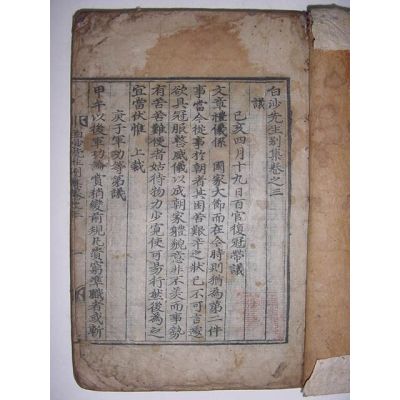 白沙先生別集卷之三
議
己亥四月十九日百官復冠帶議
文章禮儀係 國家大節而在今時則猶為第二件
事當今從事於朝者其困苦艱辛之狀已不可言
欲具冠服整威儀以成朝家體貌意非不美而事勢
有苦苦難便者姑待物力少寬使可易行然後為之
宜當伏惟 上裁
庚子軍功等第議
甲午以後軍功論賞稍變前規凡貴窮準職者或